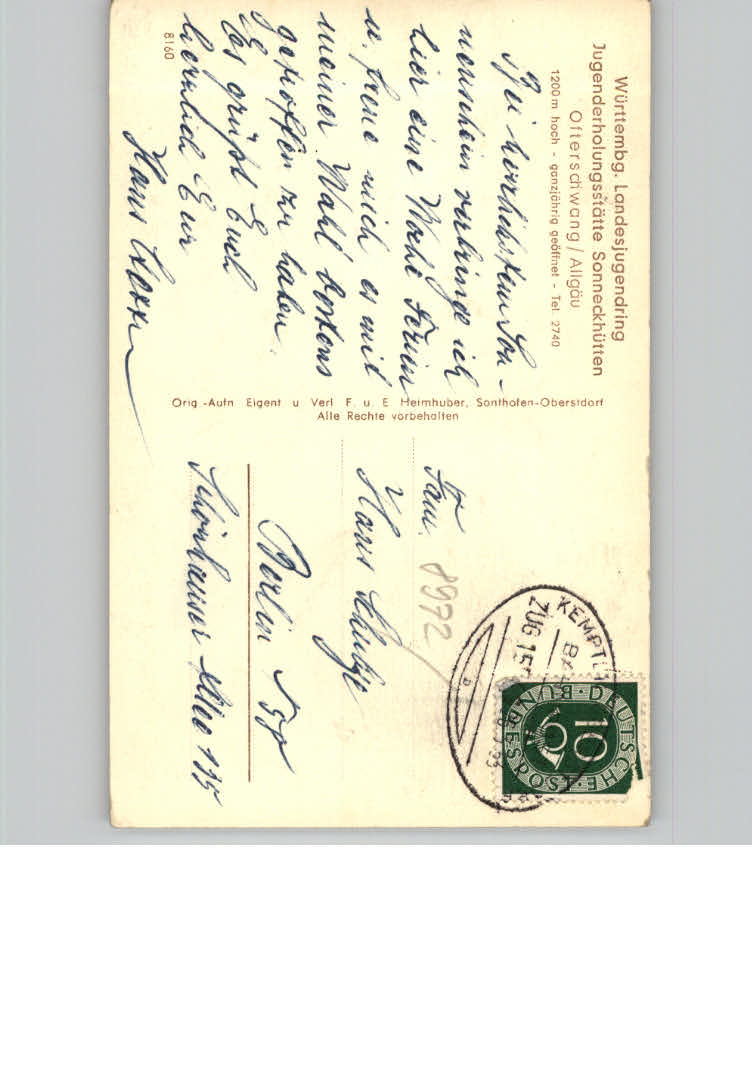 Württembg. Landesjugendring
Jugenderholungsstätte Sonneckhütten
Ofterschwang/Allgäu
1200 m hoch - ganzjährig geöffnet - Tel. 2740
Bei herrlichstem Son-
nenschein verbringe ich
hier eine Woche Ferien
u. freue mich es mit
meiner Wahl bestens
getroffen zu haben.
Es grüßt Euch
herzlich Euer
Hans
8160
Orig.-Aufn. Eigent. u. Verl. F. u. E. Heimhuber, Sonthofen-Oberstdorf
Alle Rechte vorbehalten
Fam.
Hans
Berlin
Schönhauser Allee 135
8972
ZUG
DEUTSCHE BUNDESPOST
10